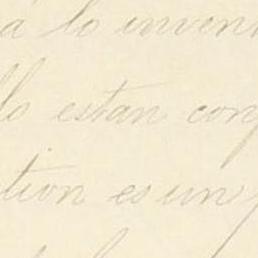 á lo inven
lo estan con
tion es un